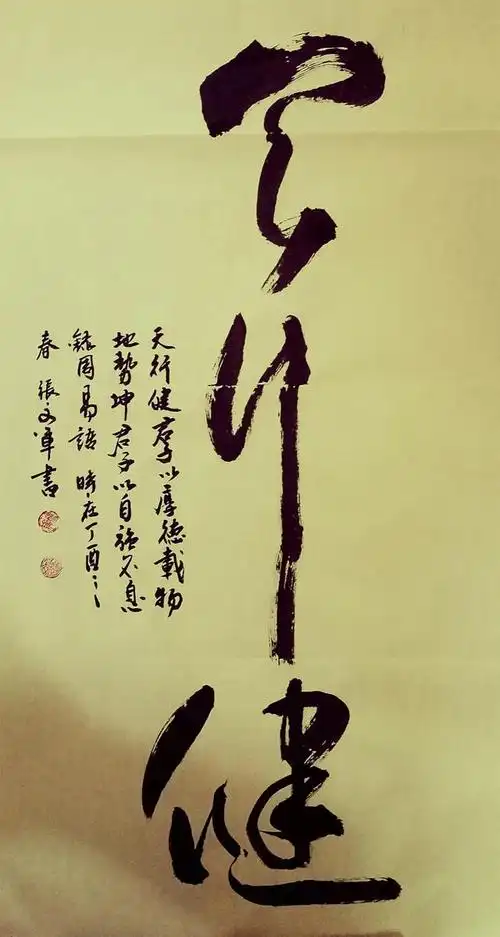 天行健
天行健君子以厚德載物
地勢坤君子以自強不息
錄周易語 時在丁酉之
春 張文軍書